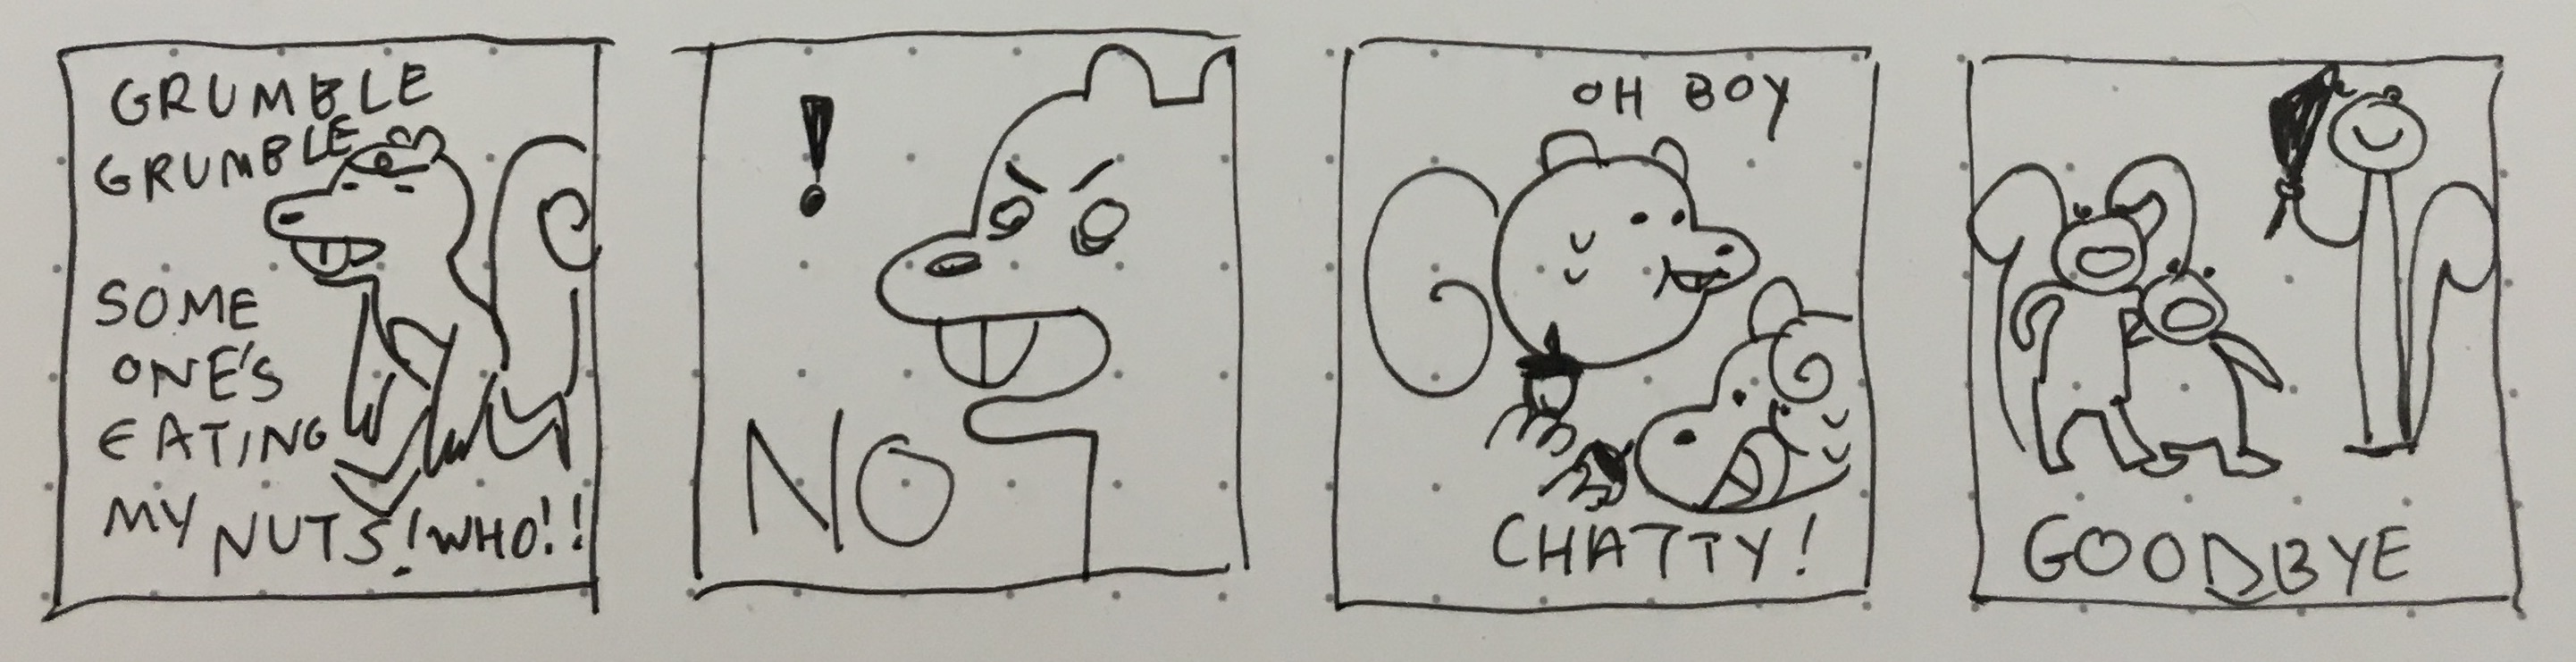 GRUMBLE
GRUMBLE
SOME
ONE'S
EATING
MY NUTS! WHO!!
!
NO
OH BOY
CHATTY!
GOODBYE